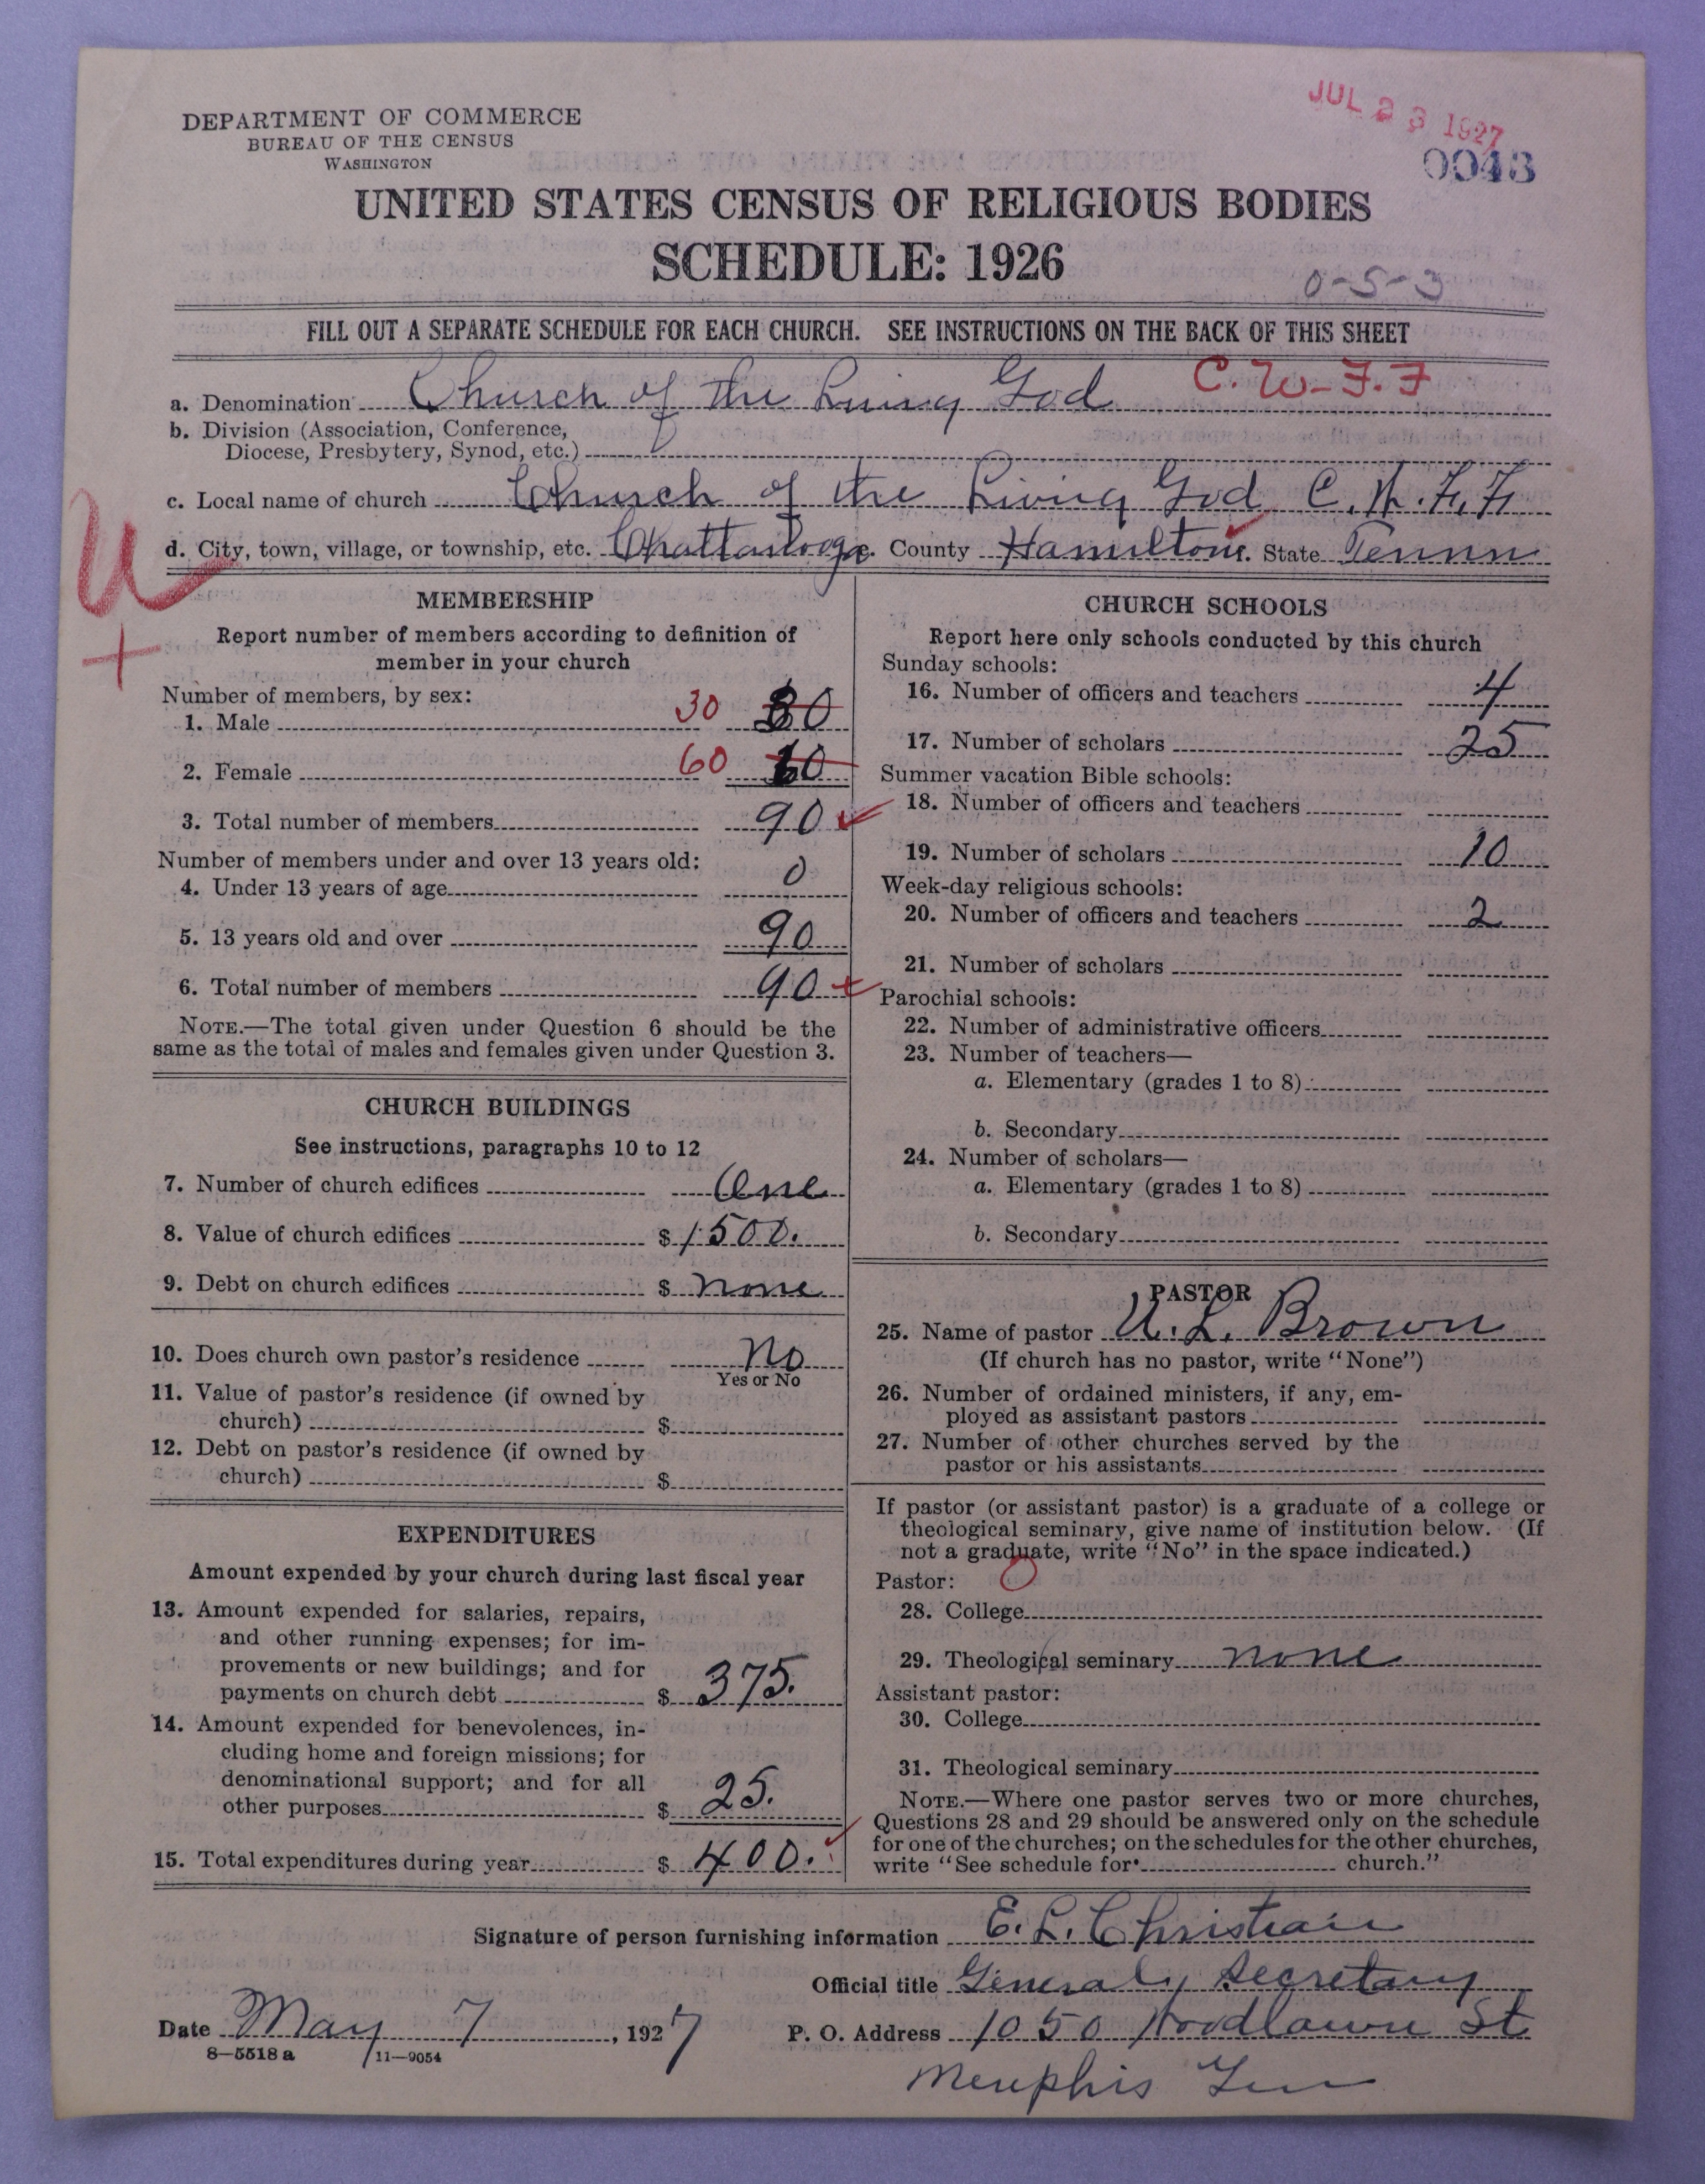 DEPARTMENT OF COMMERCE
BUREAU OF THE CENSUS
WASHINGTON
JUL 23 1927
0043
UNITED STATES CENSUS OF RELIGIOUS BODIES
SCHEDULE: 1926
0-5-3
FILL OUT A SEPARATE SCHEDULE FOR EACH CHURCH. SEE INSTRUCTIONS ON THE BACK OF THIS SHEET
a. Denomination Church of the Living God C. W-F.F
b. Division (Association, Conference,
Diocese, Presbytery, Synod, etc.)
c. Local name of church Church of the Living God C.W.F.F
d. City, town, village, or township, etc. Chattanooga. County Hamilton. State Tennn
U
+
MEMBERSHIP
Report number of members according to definition of
member in your church
Number of members, by sex:
1. Male 30 30
2. Female 60 60
3. Total number of members 90
Number of members under and over 13 years old:
4. Under 13 years of age 0
5. 13 years old and over 90
6. Total number of members 90
NOTE.—The total given under Question 6 should be the
same as the total of males and females given under Question 3.
CHURCH BUILDINGS
See instructions, paragraphs 10 to 12
7. Number of church edifices One
8. Value of church edifices $ 1500.
9. Debt on church edifices $ none
10. Does church own pastor's residence No
Yes or No
11. Value of pastor's residence (if owned by
church) $
12. Debt on pastor's residence (if owned by
church) $
EXPENDITURES
Amount expended by your church during last fiscal year
13. Amount expended for salaries, repairs,
and other running expenses; for im-
provements or new buildings; and for
payments on church debt $ 375.
14. Amount expended for benevolences, in-
cluding home and foreign missions; for
denominational support; and for all
other purposes $ 25.
15. Total expenditures during year $ 400.
CHURCH SCHOOLS
Report here only schools conducted by this church
Sunday schools:
16. Number of officers and teachers 4
17. Number of scholars 25
Summer vacation Bible schools:
18. Number of officers and teachers
19. Number of scholars 10
Week-day religious schools:
20. Number of officers and teachers 2
21. Number of scholars
Parochial schools:
22. Number of administrative officers
23. Number of teachers—
a. Elementary (grades 1 to 8)
b. Secondary
24. Number of scholars—
a. Elementary (grades 1 to 8)
b. Secondary
PASTOR
25. Name of pastor U. L. Brown
(If church has no pastor, write "None")
26. Number of ordained ministers, if any, em-
ployed as assistant pastors
27. Number of other churches served by the
pastor or his assistants
If pastor (or assistant pastor) is a graduate of a college or
theological seminary, give name of institution below. (If
not a graduate, write "No" in the space indicated.)
Pastor: 0
28. College
29. Theological seminary none
Assistant pastor:
30. College
31. Theological seminary
NOTE.—Where one pastor serves two or more churches,
Questions 28 and 29 should be answered only on the schedule
for one of the churches; on the schedules for the other churches,
write "See schedule for church."
Signature of person furnishing information E. L. Christian
Official title General Secretary
Date May 7, 1927 P. O. Address 1050 Woodlawn St
8-5518 a 11-9054
Memphis Ten